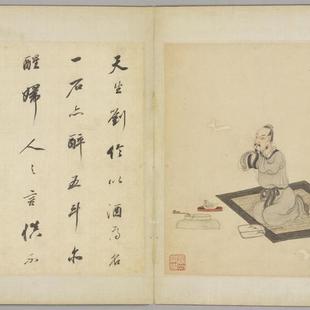 天生劉伶以酒為名
一石亦醉五斗
醒婦人之言慎不